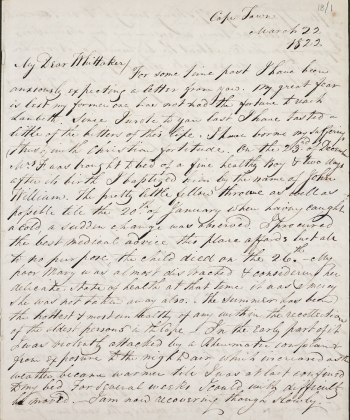 18/1
Cape Town
March 22
1822
My Dear Whittaker/
For some time past I have been
anxiously expecting a letter from you. My great fear
is lest my former one has not had the fortune to reach
Lambeth. Since I wrote to you last I have tasted a
little of the bitters of this life. I have borne my sufferings
thus with Christian fortitude. On the 23rd
Mrs was brought to bed of a fine healthy boy & two days
after its birth I baptized him by the name of John
William. The pretty little fellow throve as well as
possible till the 20th of January when having caught
a cold a sudden change was observed. I procured
the best medical advice this place affords but all
to no purpose, the child died on the 26th. My
poor Mary was almost distracted & considering her
delicate state of health at that time it was a mercy
she was not taken away also. The summer has been
the hottest & most unhealthy of any within the recollection
of the oldest persons in the Cape. In the early part of it
I was violently attacked by a Rheumatic complaint
from exposure to the night air which increased as the
weather became warmer till I was at last confined
to my bed. For several weeks I could with difficulty
be moved — I am now recovering though slowly.